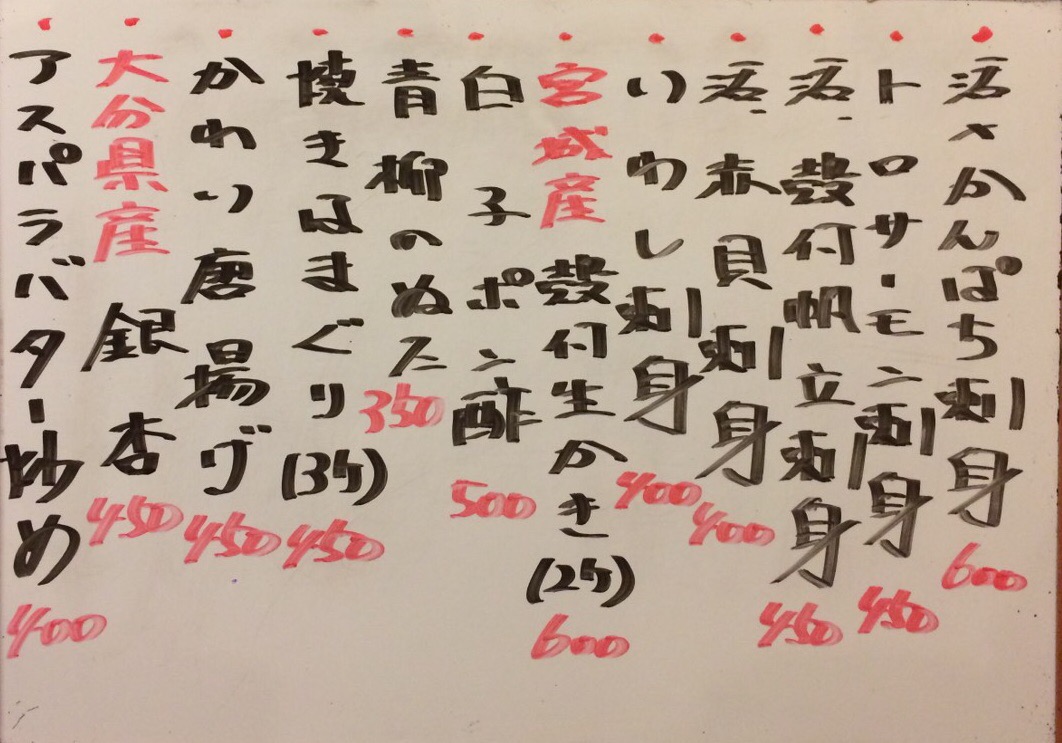 活〆かんぱち刺身 600
トロサーモン刺身 450
活殻付帆立刺身 450
活赤貝刺身 400
いわし刺身 400
宮城産殻付生かき(2ケ) 600
白子ポン酢 500
青柳のぬた 350
焼きはまぐり(3ケ) 450
かわり唐揚げ 450
大分県産銀杏 450
アスパラバター炒め 400